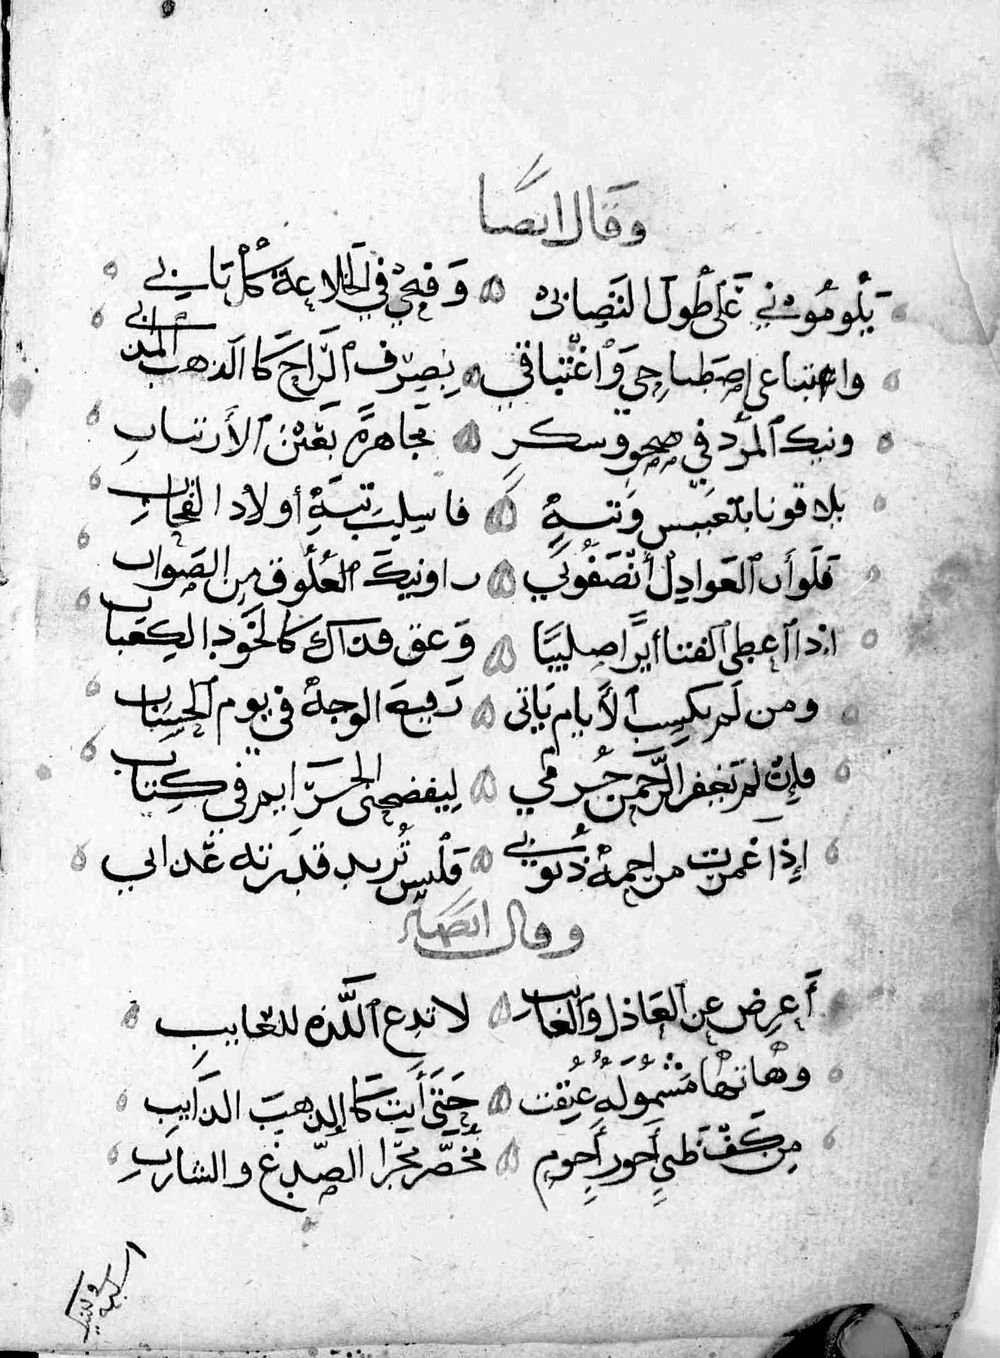 وقال ايضا
يلوموني على طول التصابي وقبحي في الخلاعة كل تابي
واعتباعي اصطباحي واغتباقي بصرف الراح كالذهب المذاب
ونيك المرد في صحو وسكر مجاهرة بغير الارتياب
بلاقونا بتعبيس وتيه فاسليب تيه أولاد القحاب
فلو أن العواذل أنصفوني راو نيك العلوق من الصواب
اذا اعطى الفتا أيرا صليبا وعق فذاك كالخود الكعاب
ومن لم يكسب الأيام ياتي رقيه الوجه في يوم الحساب
فإن لم تغفر الرحمن جرمي ليفضحني الجرايم في كتاب
إذا غمرت مراحمه ذنوبي فليس تريد قدرته عذابي
وقال ايضا
أعرض عن العاذل والعايب لا تدع اللذه للغايب
وهاتها مشموله عتقت حتى أيت كالذهب الذايب
من كف ظبي أحور أحوم مخصر الصدغ والشارب